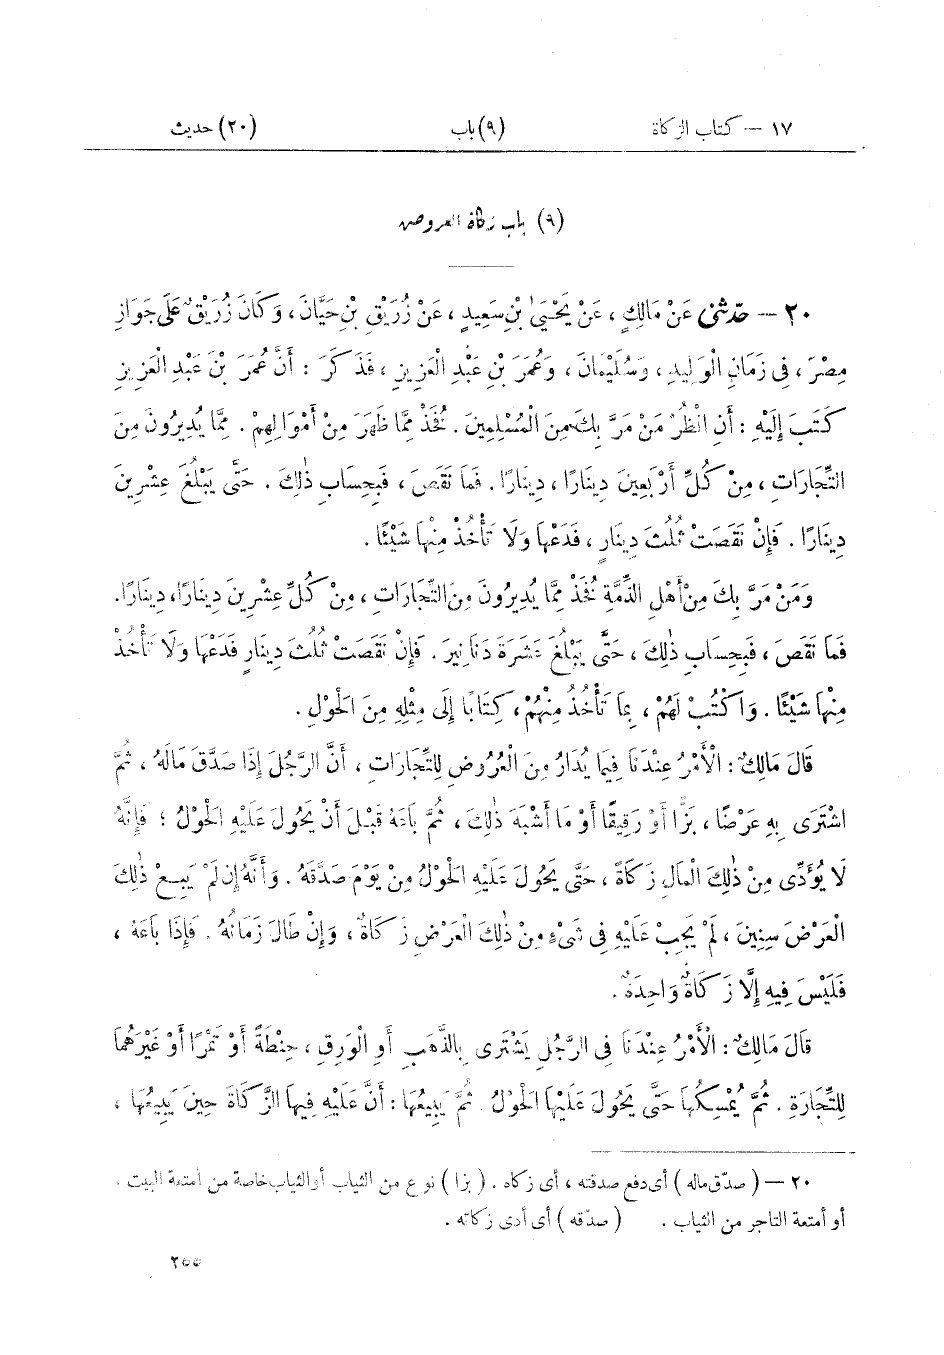 ١٧ — كتاب الزكاة (٩) باب (٢٠) حديث
(٩) باب زكاة العروض
٢٠ — حَدَّثَنِي عَنْ مَالِكٍ ، عَنْ يَحْيَىٰ بْنِ سَعِيدٍ ، عَنْ زُرَيْقِ بْنِ حَيَّانَ ، وَكَانَ زُرَيْقٌ عَلَى جَوَازِ
مِصْرَ ، فِى زَمَانِ الْوَلِيدِ ، وَسُلَيْمَانَ ، وَعُمَرَ بْنِ عَبْدِ الْعَزِيزِ ، فَذَكَرَ : أَنَّ عُمَرَ بْنَ عَبْدِ الْعَزِيزِ
كَتَبَ إِلَيْهِ : أَنِ انْظُرْ مَنْ مَرَّ بِكَ مِنَ الْمُسْلِمِينَ . فَخُذْ مِمَّا ظَهَرَ مِنْ أَمْوَالِهِمْ . مِمَّا يُدِيرُونَ مِنَ
التِّجَارَاتِ ، مِنْ كُلِّ أَرْبَعِينَ دِينَارًا ، دِينَارًا . فَمَا نَقَصَ ، فَبِحِسَابِ ذٰلِكَ . حَتَّى يَبْلُغَ عِشْرِينَ
دِينَارًا . فَإِنْ نَقَصَتْ ثُلُثَ دِينَارٍ ، فَدَعْهَا وَلَا تَأْخُذْ مِنْهَا شَيْئًا .
وَمَنْ مَرَّ بِكَ مِنْ أَهْلِ الذِّمَّةِ فَخُذْ مِمَّا يُدِيرُونَ مِنَ التِّجَارَاتِ ، مِنْ كُلِّ عِشْرِينَ دِينَارًا ، دِينَارًا .
فَمَا نَقَصَ ، فَبِحِسَابِ ذٰلِكَ ، حَتَّى يَبْلُغَ عَشَرَةَ دَنَانِيرَ . فَإِنْ نَقَصَتْ ثُلُثَ دِينَارٍ فَدَعْهَا وَلَا تَأْخُذْ
مِنْهَا شَيْئًا . وَاكْتُبْ لَهُمْ ، بِمَا تَأْخُذُ مِنْهُمْ ، كِتَابًا إِلَى مِثْلِهِ مِنَ الْحَوْلِ .
قَالَ مَالِكٌ : الْأَمْرُ عِنْدَنَا فِيمَا يُدَارُ مِنَ الْعُرُوضِ لِلتِّجَارَاتِ ، أَنَّ الرَّجُلَ إِذَا صَدَّقَ مَالَهُ ، ثُمَّ
اشْتَرَى بِهِ عَرْضًا ، بَزًّا أَوْ رَقِيقًا أَوْ مَا أَشْبَهَ ذٰلِكَ ، ثُمَّ بَاعَهُ قَبْلَ أَنْ يَحُولَ عَلَيْهِ الْحَوْلُ ؛ فَإِنَّهُ
لَا يُؤَدِّى مِنْ ذٰلِكَ الْمَالِ زَكَاةً ، حَتَّى يَحُولَ عَلَيْهِ الْحَوْلُ مِنْ يَوْمَ صَدَّقَهُ . وَأَنَّهُ إِنْ لَمْ يَبِعْ ذٰلِكَ
الْعَرْضَ سِنِينَ ، لَمْ يَجِبْ عَلَيْهِ فِى شَىْءٍ مِنْ ذٰلِكَ الْعَرْضِ زَكَاةٌ ، وَإِنْ طَالَ زَمَانُهُ . فَإِذَا بَاعَهُ ،
فَلَيْسَ فِيهِ إِلَّا زَكَاةٌ وَاحِدَةٌ .
قَالَ مَالِكٌ : الْأَمْرُ عِنْدَنَا فِى الرَّجُلِ يَشْتَرِى بِالذَّهَبِ أَوِ الْوَرِقِ ، حِنْطَةً أَوْ تَمْرًا أَوْ غَيْرَهُمَا
لِلتِّجَارَةِ . ثُمَّ يُمْسِكُهَا حَتَّى يَحُولَ عَلَيْهَا الْحَوْلُ . ثُمَّ يَبِيعُهَا : أَنَّ عَلَيْهِ فِيهَا الزَّكَاةَ حِينَ يَبِيعُهَا ،
٢٠ — ( صدّق ماله ) أى دفع صدقته ، أى زكاه . ( بزا ) نوع من الثياب أو الثياب خاصة من أمتعة البيت .
أو أمتعة التاجر من الثياب . ( صدّقه ) أى أدى زكاته .
٢٥٥